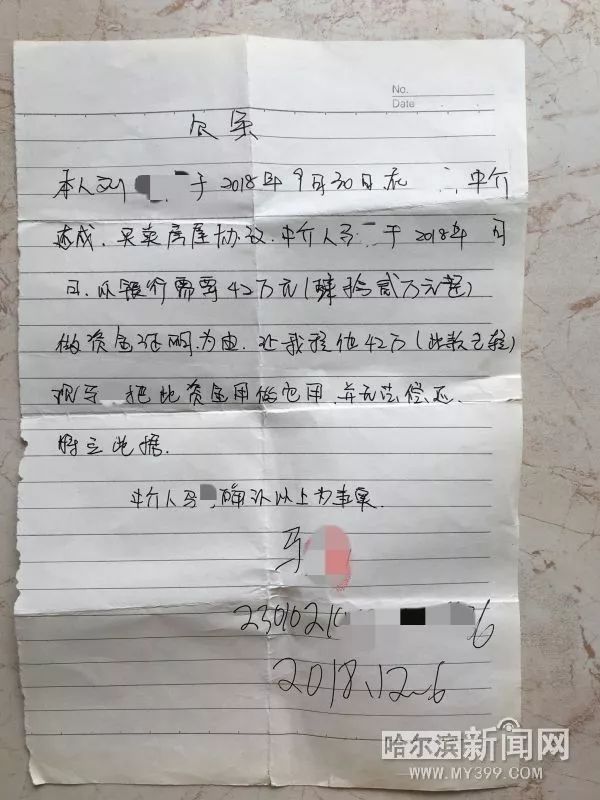 No.
Date
欠条
本人刘 于2018年9月30日在 中介
达成,买卖房屋协议.中介人马 于2018年 月
日.以银行需要42万元(肆拾贰万元整)
做资金证明.为由.让我 他42万(此款已转)
现马 把此资金用做它用.并无法偿还.
特立此据.
中介人马 ,确认以上为事实.
马
2301021 6
2018.12.6
哈尔滨新闻网
WWW.MY399.COM